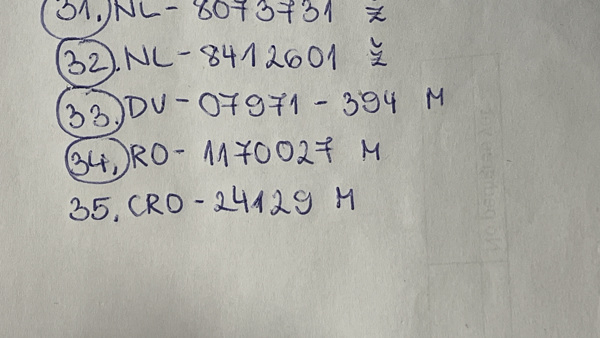 31. NL - 8073731 ž
32. NL - 8412601 ž
33. DV - 07971 - 394 M
34. RO - 1170027 M
35. CRO - 24129 M